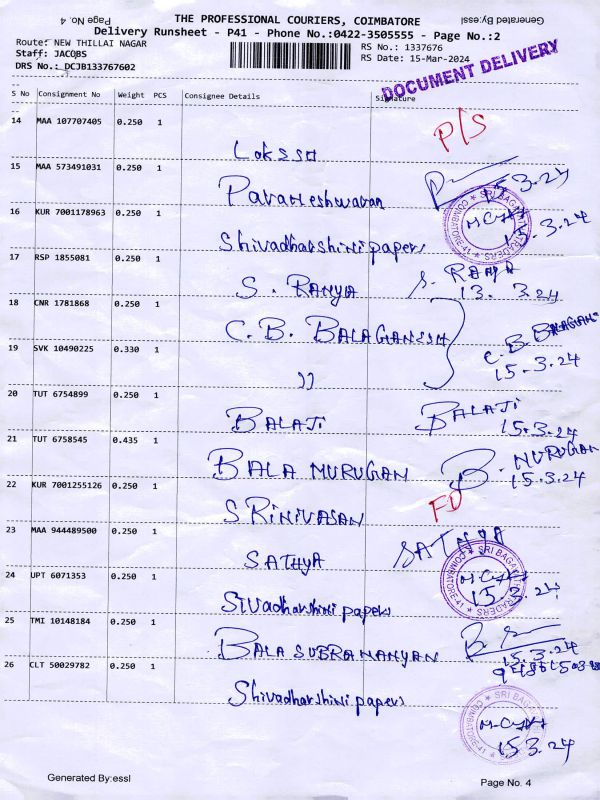 Page No. 4
Generated By:essl
THE PROFESSIONAL COURIERS, COIMBATORE
Delivery Runsheet - P41 - Phone No.:0422-3505555 - Page No.:2
Route: NEW THILLAI NAGAR
Staff: JACOBS
DRS No.: DCJB133767602
RS No.: 1337676
RS Date: 15-Mar-2024
DOCUMENT DELIVERY
S No Consignment No Weight PCS Consignee Details Signature
14 MAA 107707405 0.250 1
P/S
15 MAA 573491031 0.250 1
Parameshwaran 15.3.24
16 KUR 7001178963 0.250 1
Shivadharshini papers 15.3.24
17 RSP 1855081 0.250 1
S. RAMYA S. RAMYA
13.3.24
18 CNR 1781868 0.250 1
C.B. BALAGANESH C.B. BALAGANESH
19 SVK 10490225 0.330 1
15.3.24
,,
20 TUT 6754899 0.250 1
BALAJI BALAJI
15.3.24
21 TUT 6758545 0.435 1
BALA MURUGAN B. MURUGAN
15.3.24
22 KUR 7001255126 0.250 1
SRINIVASAN FD
23 MAA 944489500 0.250 1
SATHYA SATHYA
24 UPT 6071353 0.250 1
Sivadharshini papers 15.3.24
25 TMI 10148184 0.250 1
BALASUBRAMANYAN
15.3.24
26 CLT 50029782 0.250 1
Shivadharshini papers
15.3.24
SRI BAGAVATHI TRADERS
COIMBATORE-41
Generated By:essl
Page No. 4